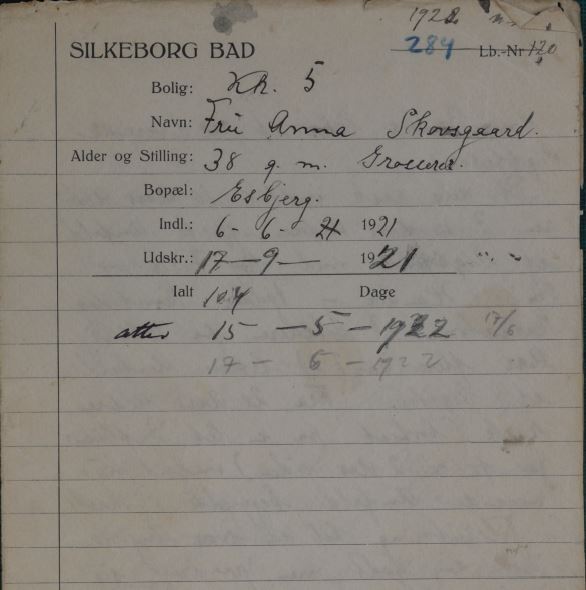 1922
SILKEBORG BAD 284 Lb.-Nr 120
Bolig: Kh. 5
Navn: Fru Anna Skovsgaard.
Alder og Stilling: 38 g. m. Grosserer.
Bopæl: Esbjerg.
Indl.: 6 - 6 - 21 1921
Udskr.: 17 - 9 - 1921
Ialt 104 Dage
atter 15 - 5 - 1922 17/6
17 - 6 - 1922